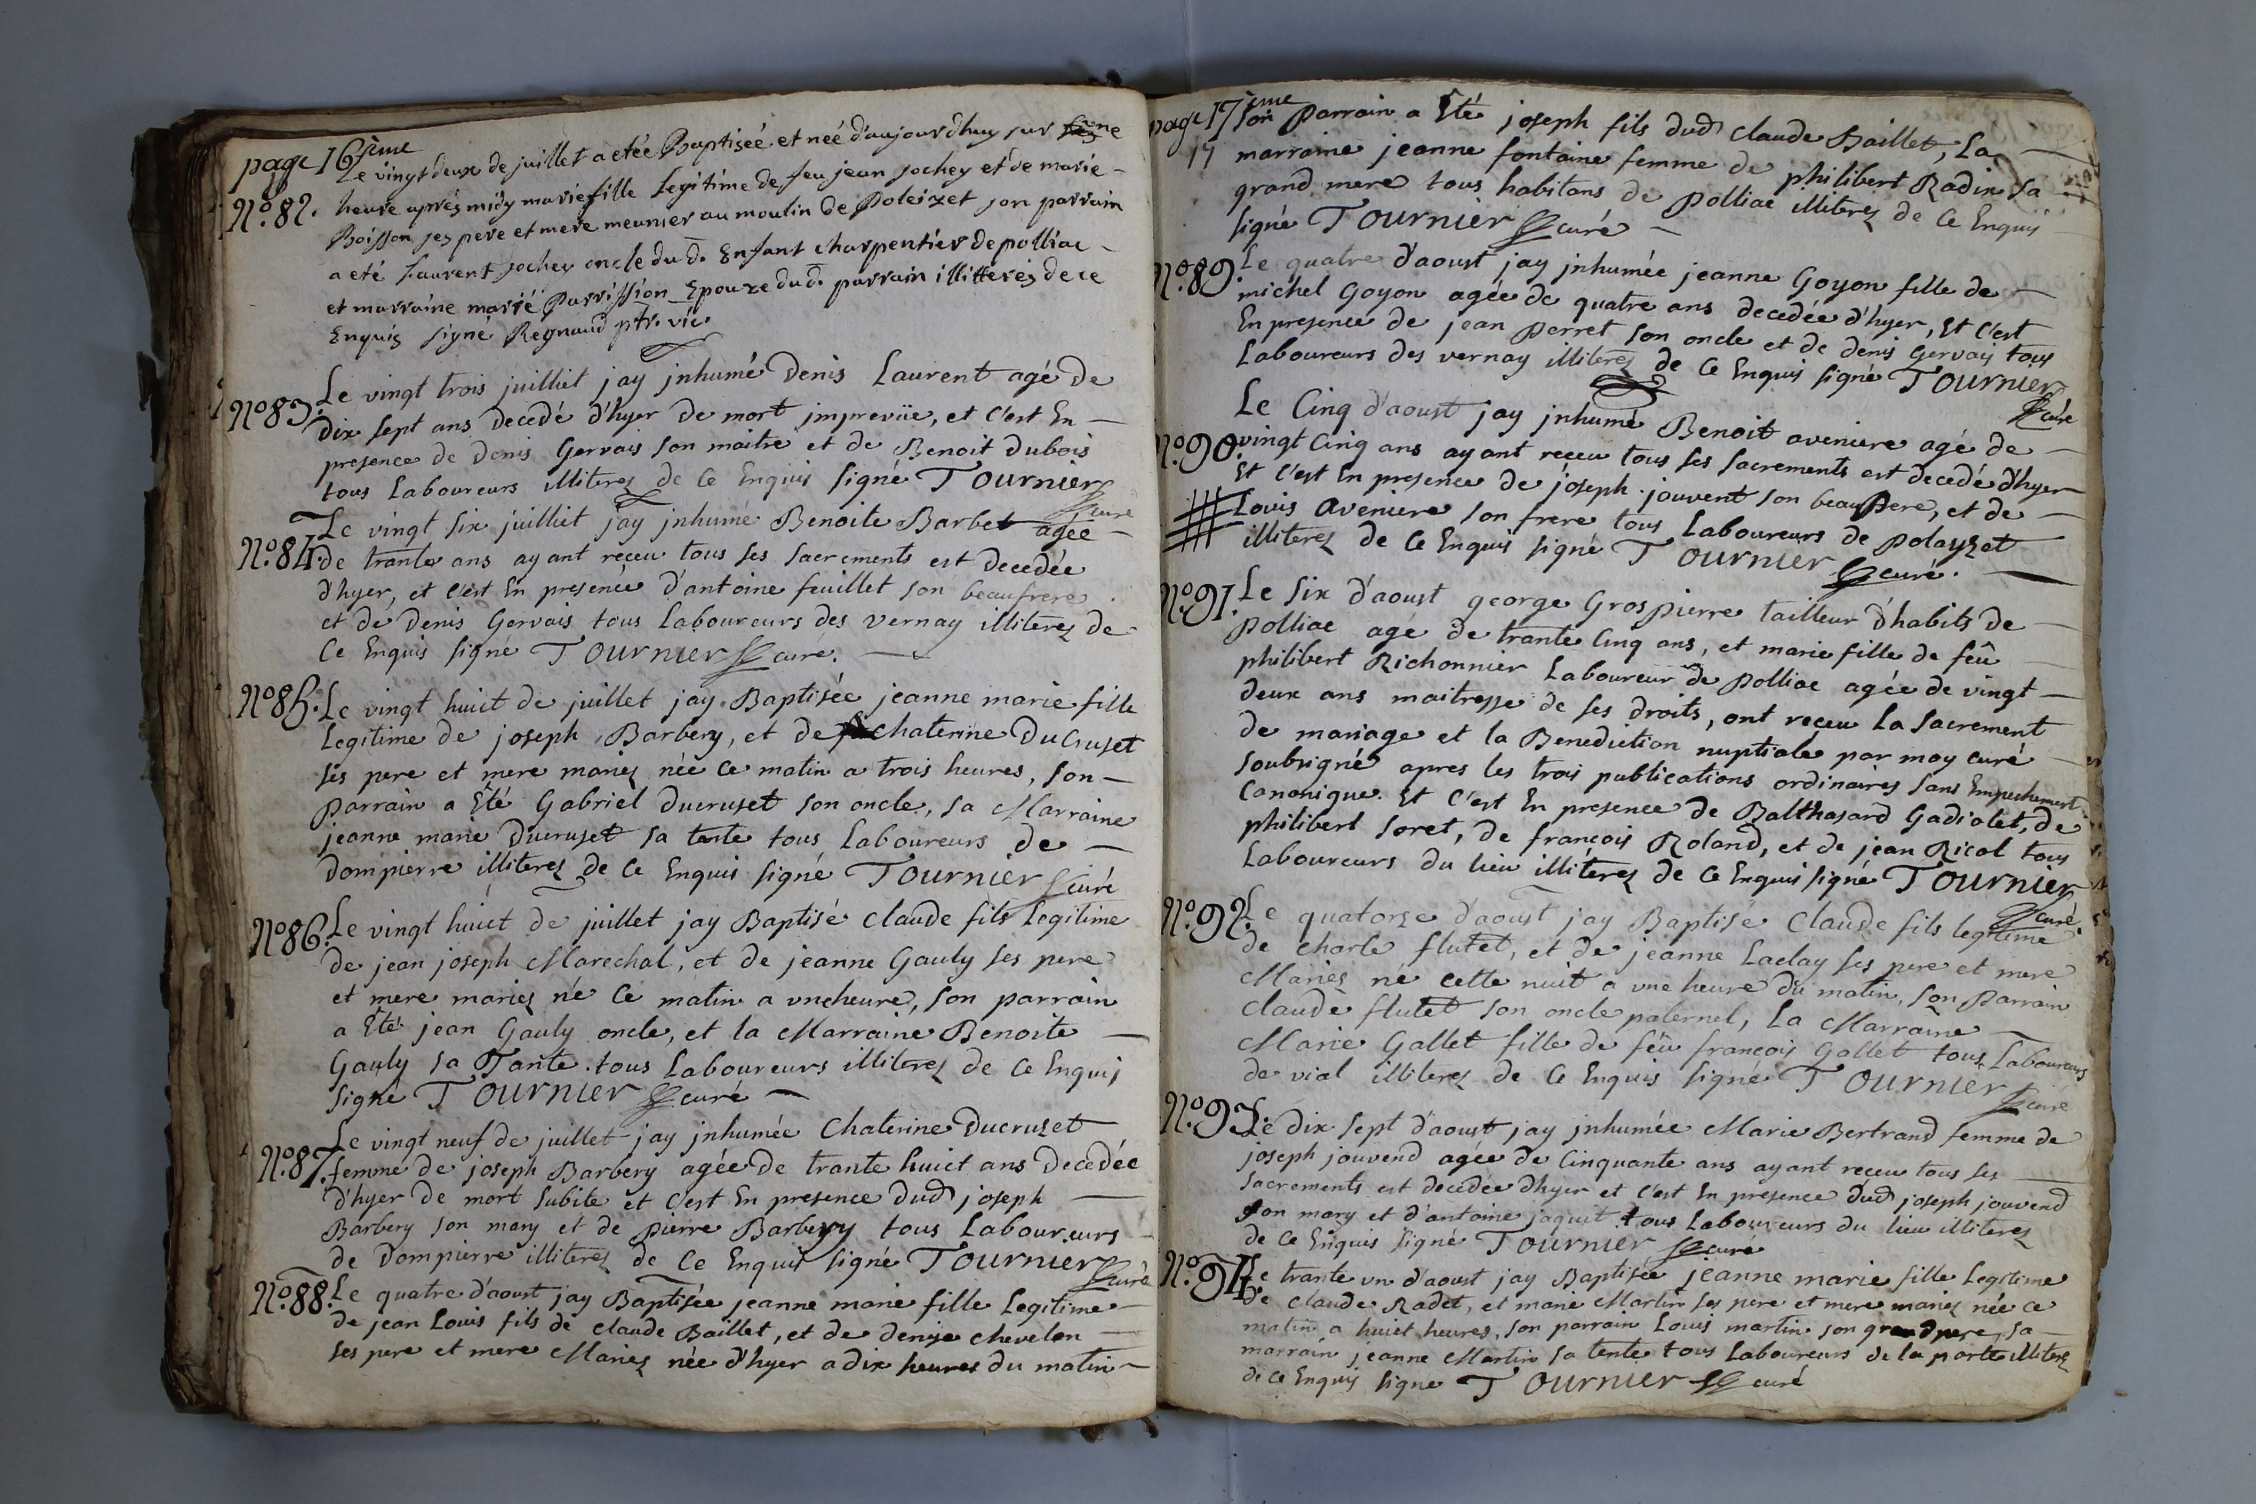 page 16ieme
Le vingt deux de juillet a etée Baptisée et née d'aujourdhuy sur une
N.o 82. heure aprés midy marie fille legitime de feu jean jochey et de marie
Boisson ses pere et mere meunier au moulin de Poleizet son parrain
a eté Laurent jochey oncle du d. Enfant charpentier de polliac
et marraine marié Parrission Epouze dud. parrain illitterés de ce
Enquis signé Regnaud ptr. vic
Le vingt trois juilliet jay jnhumé Denis Laurent agé de
N.o 83. dix sept ans decedé d'hyer de mort jmprevüe, et c'est En
presence de Denis Gervais son maitre et de Benoit Dubois
tous Laboureurs illiterez de ce Enquis signé TOURNIER
curé
Le vingt six juilliet jay jnhumé Benoite Barbet agée
N.o 84. de trante ans ayant receu tous ses sacrements est decedée
d'hyer, et c'est En presence d'antoine feuillet son beaufrere
et de Denis Gervais tous Laboureurs des vernay illiterez de
ce Enquis signé TOURNIER curé.
N.o 85. Le vingt huict de juillet jay Baptisée jeanne marie fille
Legitime de joseph Barbery, et de chaterine Ducruset
ses pere et mere mariez née ce matin a trois heures, son
parrain a Eté Gabriel Ducruset son oncle, sa Marraine
jeanne marie Ducruset sa tente tous Laboureurs de
Dompierre illiterez de ce Enquis signé TOURNIER curé
N.o 86. Le vingt huict de juillet jay Baptisé claude fils Legitime
de jean joseph Marechal, et de jeanne Gauly ses pere
et mere mariez né ce matin a vne heure, son parrain
a Eté jean Gauly oncle, et la Marraine Benoite
Gauly sa Tante tous Laboureurs illiterez de ce Enquis
signé TOURNIER curé
Le vingt neuf de juillet jay jnhumée Chaterine Ducruzet
N.o 87. femme de joseph Barbery agée de trante huict ans decedée
d'hyer de mort subite et c'est En presence dud joseph
Barbery son mary et de pierre Barbery tous Laboureurs
de Dompierre illiterez de ce Enquis signé TOURNIER
curé
N.o 88. Le quatre d'aoust jay Baptisée jeanne marie fille Legitime
de jean Louis fils de claude Baillet, et de denise chevelon
ses pere et mere Mariez née d'hyer a dix heures du matin
page 17ieme son Parrain a Eté joseph fils dud claude Baillet, La
17 marraine jeanne fontaine femme de philibert Radix sa
grand mere tous habitans de polliac illiterez de ce Enquis
signé TOURNIER curé
N.o 89. Le quatre d'aoust jay jnhumée jeanne Goyon fille de
michel Goyon agée de quatre ans decedée d'hyer, Et c'est
En presence de jean perret son oncle et de denis Gervais tous
Laboureurs des vernay illiterez de ce Enquis signé TOURNIER
curé
Le Cinq d'aoust jay jnhumé Benoit aveniere agé de
N.o 90. vingt Cinq ans ayant receu tous ses sacrements est decedé d'hyer
Et c'est En presence de joseph jouvent son beau Pere, et de
Louis aveniere son frere tous Laboureurs de polayzet
illiterez de ce Enquis signé TOURNIER curé.
N.o 91. Le six d'aoust george Grospierre tailleur d'habits de
polliac agé de trante Cinq ans, et marie fille de feû
philibert Richonnier Laboureur de polliac agée de vingt
deux ans maitresse de ses droits, ont receu La sacrement
de mariage et la Benediction nuptiale par moy curé
soubsigné apres les trois publications ordinaires sans Empechement
Canonique. Et c'est En presence de Balthasard Gadiolet, de
philibert soret, de françois Roland, et de jean Ricol tous
Laboureurs du lieu illiterez de ce Enquis signé TOURNIER
curé.
N.o 92. Le quatorze d'aoust jay Baptisé Claude fils legitime
de charle flutet, et de jeanne Laclay ses pere et mere
Mariez né cette nuit a vne heure du matin, son Parrain
claude flutet son oncle paternel, La Marraine
Marie Gallet fille de feu françois Gallet tous Laboureurs
de vial illiterez de ce Enquis signé TOURNIER
curé
N.o 93. Le dix sept d'aoust jay jnhumée Marie Bertrand femme de
joseph jouvend agée de Cinquante ans ayant receu tous ses
sacrements est decedée d'hyer et c'est En presence dud joseph jouvend
son mary et d'antoine jaquit tous Laboureurs du lieu illiterez
de ce Enquis signé TOURNIER curé
N.o 94. Le trante vn d'aoust jay Baptisée jeanne marie fille Legitime
de claude Radet, et marie Martin ses pere et mere mariez née ce
matin a huict heures, son parrain Louis martin son grand pere, sa
marrain jeanne Martin sa tente tous Laboureurs de la porte illiterz
de ce Enquis signé TOURNIER curé